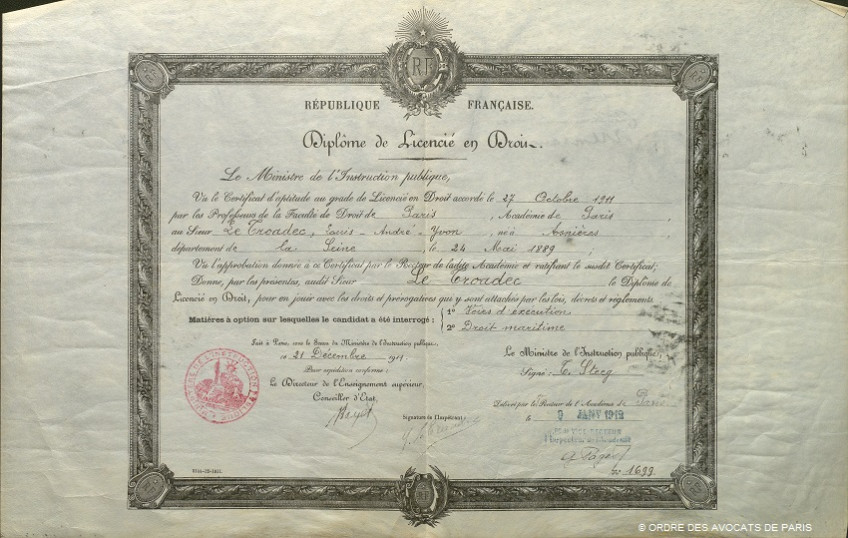 RF
RÉPUBLIQUE FRANÇAISE.
Diplôme de Licencié en Droit.
Le Ministre de l'Instruction publique,
Vu le Certificat d'aptitude au grade de Licencié en Droit accordé le 27 Octobre 1911
par les Professeurs de la Faculté de Droit de Paris, Académie de Paris
au Sieur Le Troadec, Louis-André-Yvon, né à Asnières
département de la Seine, le 24 Mai 1889
Vu l'approbation donnée à ce Certificat par le Recteur de ladite Académie et ratifiant le susdit Certificat;
Donne, par les présentes, audit Sieur Le Troadec le Diplôme de
Licencié en Droit, pour en jouir avec les droits et prérogatives qui y sont attachés par les lois, décrets et règlements.
Matières à option sur lesquelles le candidat a été interrogé : 1° Voies d'exécution
2° Droit maritime
Fait à Paris, sous le Sceau du Ministère de l'Instruction publique,
ce 21 Décembre 1911
Pour expédition conforme :
Le Directeur de l'Enseignement supérieur,
Conseiller d'État,
Le Ministre de l'Instruction publique,
Signé : T. Steeg
Signature de l'Impétrant :
Délivré par le Recteur de l'Académie de Paris
le 9 JANV 1912
LE VICE-RECTEUR
l'Inspecteur de l'Académie
N° 1699
© ORDRE DES AVOCATS DE PARIS